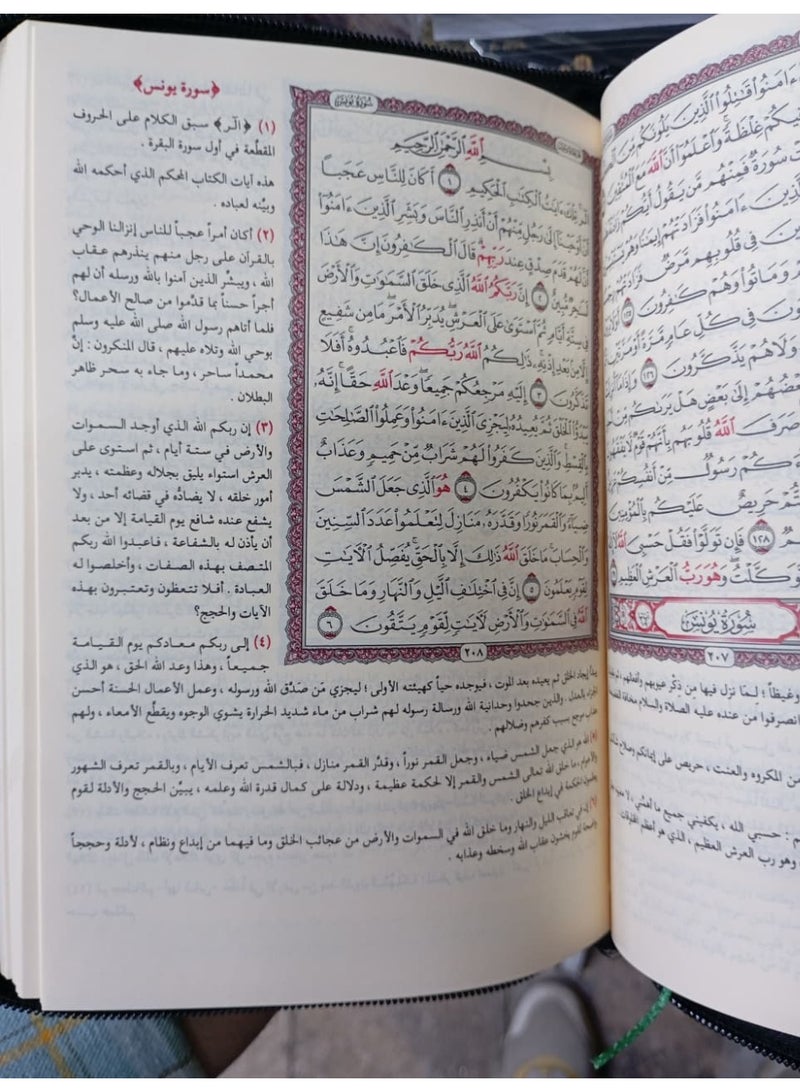 ءَامَنُوا۟ قَٰتِلُوا۟ ٱلَّذِينَ يَلُونَكُم مِّنَ
فِيكُمْ غِلْظَةً ۚ وَٱعْلَمُوٓا۟ أَنَّ ٱللَّهَ مَعَ ٱلْمُتَّقِينَ
سُورَةٌ فَمِنْهُم مَّن يَقُولُ أَيُّكُمْ
ءَامَنُوا۟ فَزَادَتْهُمْ إِيمَٰنًا وَهُمْ
فِى قُلُوبِهِم مَّرَضٌ فَزَادَتْهُمْ
وَمَاتُوا۟ وَهُمْ كَٰفِرُونَ ١٢٥
فِى كُلِّ عَامٍ مَّرَّةً أَوْ مَرَّتَيْنِ
وَلَا هُمْ يَذَّكَّرُونَ ١٢٦ وَإِذَا مَآ
بَعْضُهُمْ إِلَىٰ بَعْضٍ هَلْ يَرَىٰكُم مِّنْ
صَرَفَ ٱللَّهُ قُلُوبَهُم بِأَنَّهُمْ قَوْمٌ لَّا يَفْقَهُونَ
جَآءَكُمْ رَسُولٌ مِّنْ أَنفُسِكُمْ
عَنِتُّمْ حَرِيصٌ عَلَيْكُم بِٱلْمُؤْمِنِينَ
١٢٨ فَإِن تَوَلَّوْا۟ فَقُلْ حَسْبِىَ ٱللَّهُ
تَوَكَّلْتُ ۖ وَهُوَ رَبُّ ٱلْعَرْشِ ٱلْعَظِيمِ
سُورَةُ يُونُسَ
٢٠٧
وغيظاً ؛ لـمّا نزل فيها مِن ذِكْر عيوبهم وأفعالهم ،
انصرفوا من عنده عليه الصلاة والسلام مخافة
من المكروه والعنت ، حريص على إيمانكم وصلاح
: حسبي الله ، يكفيني جميع ما أهمني ، لا
وهو رب العرش العظيم ، الذي هو أعظم المخلوقات
سُورَةُ يُونُسَ
بِسْمِ ٱللَّهِ ٱلرَّحْمَٰنِ ٱلرَّحِيمِ
الٓر ۚ تِلْكَ ءَايَٰتُ ٱلْكِتَٰبِ ٱلْحَكِيمِ ١ أَكَانَ لِلنَّاسِ عَجَبًا
أَنْ أَوْحَيْنَآ إِلَىٰ رَجُلٍ مِّنْهُمْ أَنْ أَنذِرِ ٱلنَّاسَ وَبَشِّرِ ٱلَّذِينَ ءَامَنُوٓا۟
أَنَّ لَهُمْ قَدَمَ صِدْقٍ عِندَ رَبِّهِمْ ۗ قَالَ ٱلْكَٰفِرُونَ إِنَّ هَٰذَا
لَسَٰحِرٌ مُّبِينٌ ٢ إِنَّ رَبَّكُمُ ٱللَّهُ ٱلَّذِى خَلَقَ ٱلسَّمَٰوَٰتِ وَٱلْأَرْضَ
فِى سِتَّةِ أَيَّامٍ ثُمَّ ٱسْتَوَىٰ عَلَى ٱلْعَرْشِ ۖ يُدَبِّرُ ٱلْأَمْرَ ۖ مَا مِن شَفِيعٍ
إِلَّا مِنۢ بَعْدِ إِذْنِهِۦ ۚ ذَٰلِكُمُ ٱللَّهُ رَبُّكُمْ فَٱعْبُدُوهُ ۚ أَفَلَا
تَذَكَّرُونَ ٣ إِلَيْهِ مَرْجِعُكُمْ جَمِيعًا ۖ وَعْدَ ٱللَّهِ حَقًّا ۚ إِنَّهُۥ
يَبْدَؤُا۟ ٱلْخَلْقَ ثُمَّ يُعِيدُهُۥ لِيَجْزِىَ ٱلَّذِينَ ءَامَنُوا۟ وَعَمِلُوا۟ ٱلصَّٰلِحَٰتِ
بِٱلْقِسْطِ ۚ وَٱلَّذِينَ كَفَرُوا۟ لَهُمْ شَرَابٌ مِّنْ حَمِيمٍ وَعَذَابٌ
أَلِيمٌۢ بِمَا كَانُوا۟ يَكْفُرُونَ ٤ هُوَ ٱلَّذِى جَعَلَ ٱلشَّمْسَ
ضِيَآءً وَٱلْقَمَرَ نُورًا وَقَدَّرَهُۥ مَنَازِلَ لِتَعْلَمُوا۟ عَدَدَ ٱلسِّنِينَ
وَٱلْحِسَابَ ۚ مَا خَلَقَ ٱللَّهُ ذَٰلِكَ إِلَّا بِٱلْحَقِّ ۚ يُفَصِّلُ ٱلْءَايَٰتِ
لِقَوْمٍ يَعْلَمُونَ ٥ إِنَّ فِى ٱخْتِلَٰفِ ٱلَّيْلِ وَٱلنَّهَارِ وَمَا خَلَقَ
ٱللَّهُ فِى ٱلسَّمَٰوَٰتِ وَٱلْأَرْضِ لَءَايَٰتٍ لِّقَوْمٍ يَتَّقُونَ ٦
٢٠٨
﴿سورة يونس﴾
(١) ﴿الٓر﴾ سبق الكلام على الحروف
المقطَّعة في أول سورة البقرة .
هذه آيات الكتاب المحكم الذي أحكمه الله
وبيَّنه لعباده .
(٢) أكان أمراً عجباً للناس إنزالنا الوحي
بالقرآن على رجل منهم ينذرهم عقاب
الله ، ويبشِّر الذين آمنوا بالله ورسله أن لهم
أجراً حسناً بما قدَّموا من صالح الأعمال؟
فلما أتاهم رسول الله صلى الله عليه وسلم
بوحي الله وتلاه عليهم ، قال المنكرون : إنَّ
محمداً ساحر ، وما جاء به سحر ظاهر
البطلان .
(٣) إن ربكم الله الذي أوجد السموات
والأرض في ستة أيام ، ثم استوى على
العرش استواء يليق بجلاله وعظمته ، يدبر
أمور خلقه ، لا يضادُّه في قضائه أحد ، ولا
يشفع عنده شافع يوم القيامة إلا من بعد
أن يأذن له بالشفاعة ، فاعبدوا الله ربكم
المتصف بهذه الصفات ، وأخلصوا له
العبادة . أفلا تتعظون وتعتبرون بهذه
الآيات والحجج؟
(٤) إلى ربكم معادكم يوم القيامة
جميعاً ، وهذا وعد الله الحق ، هو الذي
يبدأ إيجاد الخلق ثم يعيده بعد الموت ، فيوجده حياً كهيئته الأولى ؛ ليجزي مَن صَدَّق الله ورسوله ، وعمل الأعمال الحسنة أحسن
الجزاء بالعدل . والذين جحدوا وحدانية الله ورسالة رسوله لهم شراب من ماء شديد الحرارة يشوي الوجوه ويقطِّع الأمعاء ، ولهم
عذاب موجع بسبب كفرهم وضلالهم .
(٥) الله هو الذي جعل الشمس ضياء ، وجعل القمر نوراً ، وقدَّر القمر منازل ، فبالشمس تعرف الأيام ، وبالقمر تعرف الشهور
والأعوام ، ما خلق الله تعالى الشمس والقمر إلا لحكمة عظيمة ، ودلالة على كمال قدرة الله وعلمه ، يبيِّن الحجج والأدلة لقوم
يعلمون الحكمة في إبداع الخلق .
(٦) إن في تعاقب الليل والنهار وما خلق الله في السموات والأرض من عجائب الخلق وما فيهما من إبداع ونظام ، لأدلة وحججاً
واضحة لقوم يخشون عقاب الله وسخطه وعذابه .